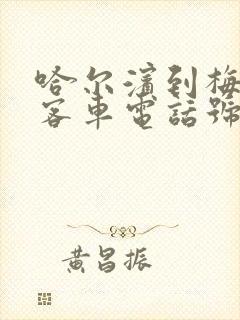 哈尔濱到梅
客車電話號
黄昌振